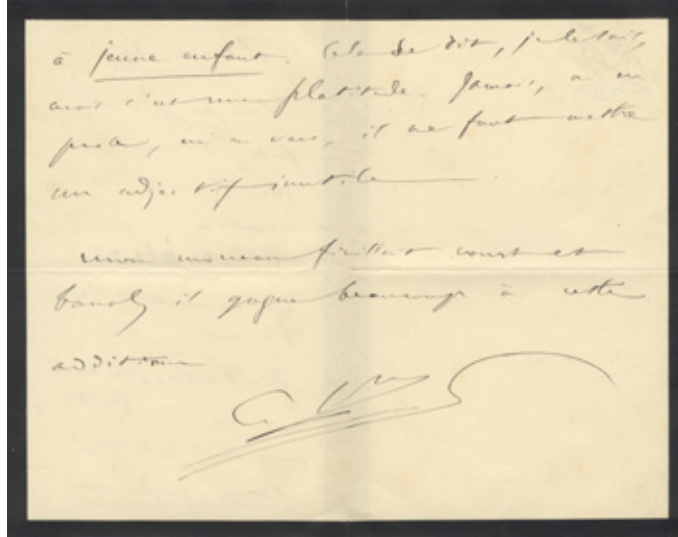 à jeune enfant. Cela se dit, je le sais,
mais c'est une platitude. Jamais, ni en
prose, ni en vers, il ne faut mettre
un adjectif inutile
mon morceau finissait court et
banal, il gagne beaucoup à cette
addition